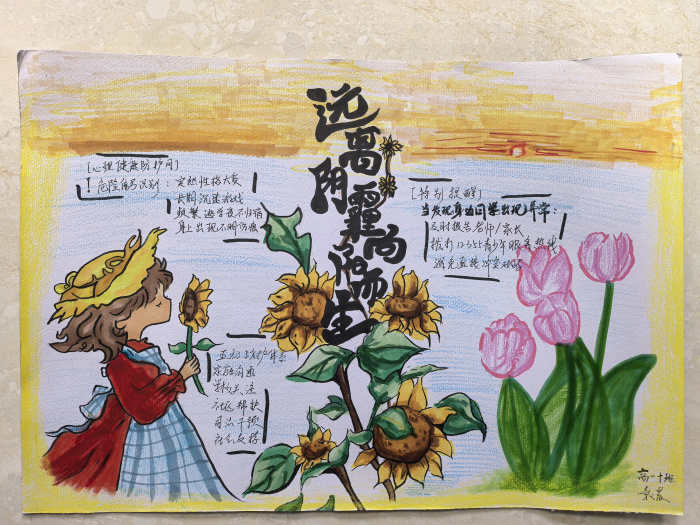 远离阴霾向阳而生
[心理健康防护网]
! 危险信号识别: 突然性格大变
长期沉迷游戏
频繁逃学夜不归宿
身上出现不明伤痕
[特别提醒]
当发现身边同学出现异常:
及时报告老师/家长
拨打12355青少年服务热线
避免直接冲突对峙
家庭沟通
学校关注
社区帮扶
司法干预
高一十班